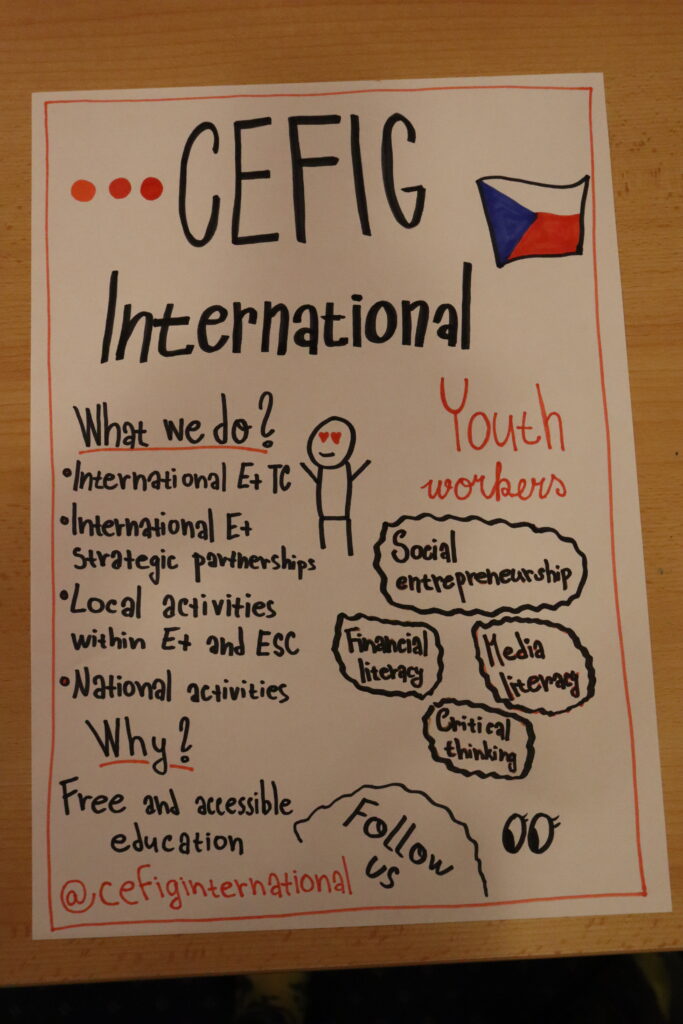 CEFIG
International
What we do?
•International E+ TC
•International E+
strategic partnerships
•Local activities
within E+ and ESC
•National activities
Why?
Free and accessible
education
@cefiginternational
Youth
workers
Social
entrepreneurship
Financial
literacy
Media
literacy
Critical
thinking
Follow
us